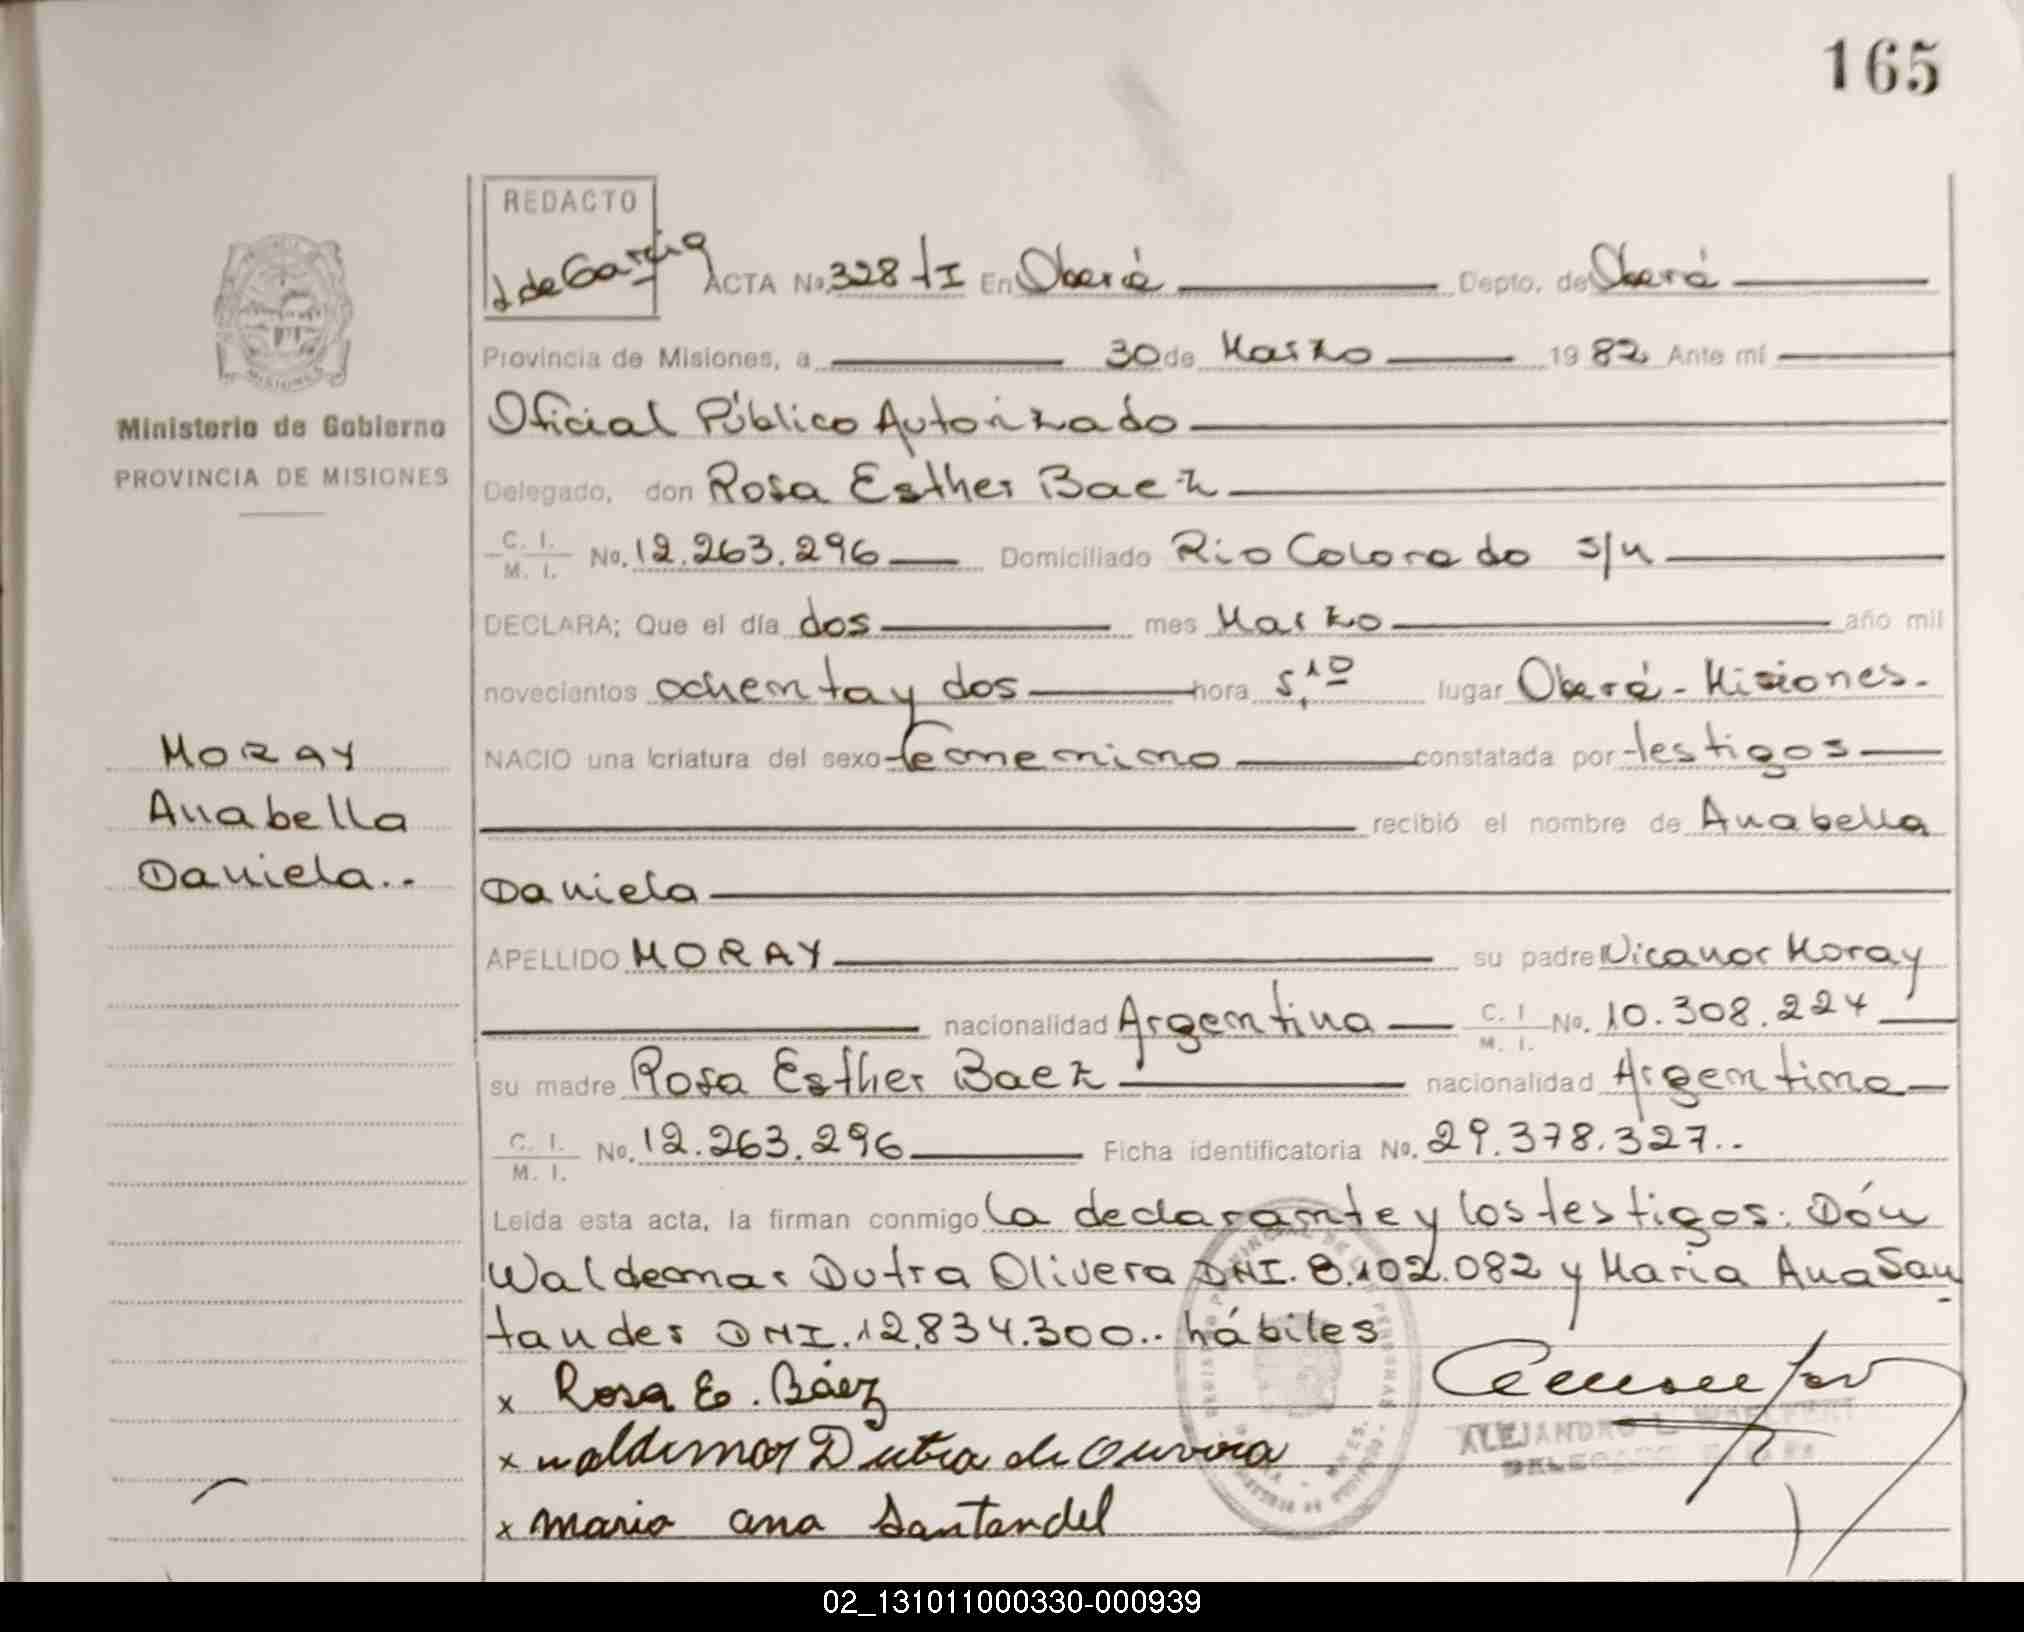 165
REDACTO
ACTA No. 328 tI En Oberá Depto. de Oberá
Provincia de Misiones, a 30 de Marzo 1982 Ante mí
Ministerio de Gobierno
PROVINCIA DE MISIONES
Oficial Público Autorizado
Delegado, don Rosa Esther Baez
C. I.
M. I. No. 12.263.296 Domiciliado Rio Colorado s/n
DECLARA; Que el día dos mes Marzo año mil
novecientos ochenta y dos hora 5,10 lugar Oberá - Misiones.
MORAY
Anabella
Daniela..
NACIO una criatura del sexo femenino constatada por testigos
recibió el nombre de Anabella
Daniela
APELLIDO MORAY su padre Nicanor Moray
nacionalidad Argentina C. I
M. I. No. 10.308.224
su madre Rosa Esther Baez nacionalidad Argentina
C. I.
M. I. No. 12.263.296 Ficha identificatoria No. 29.378.327..
Leída esta acta, la firman conmigo la declarante y los testigos: Dón
Waldemar Dutra Olivera DNI. 8.102.082 y Maria Ana San
tander DNI. 12.834.300.. hábiles
x Rosa E. Báez
ALEJANDRO L.
x waldemar Dutra de
x maria ana Santander
02_131011000330-000939